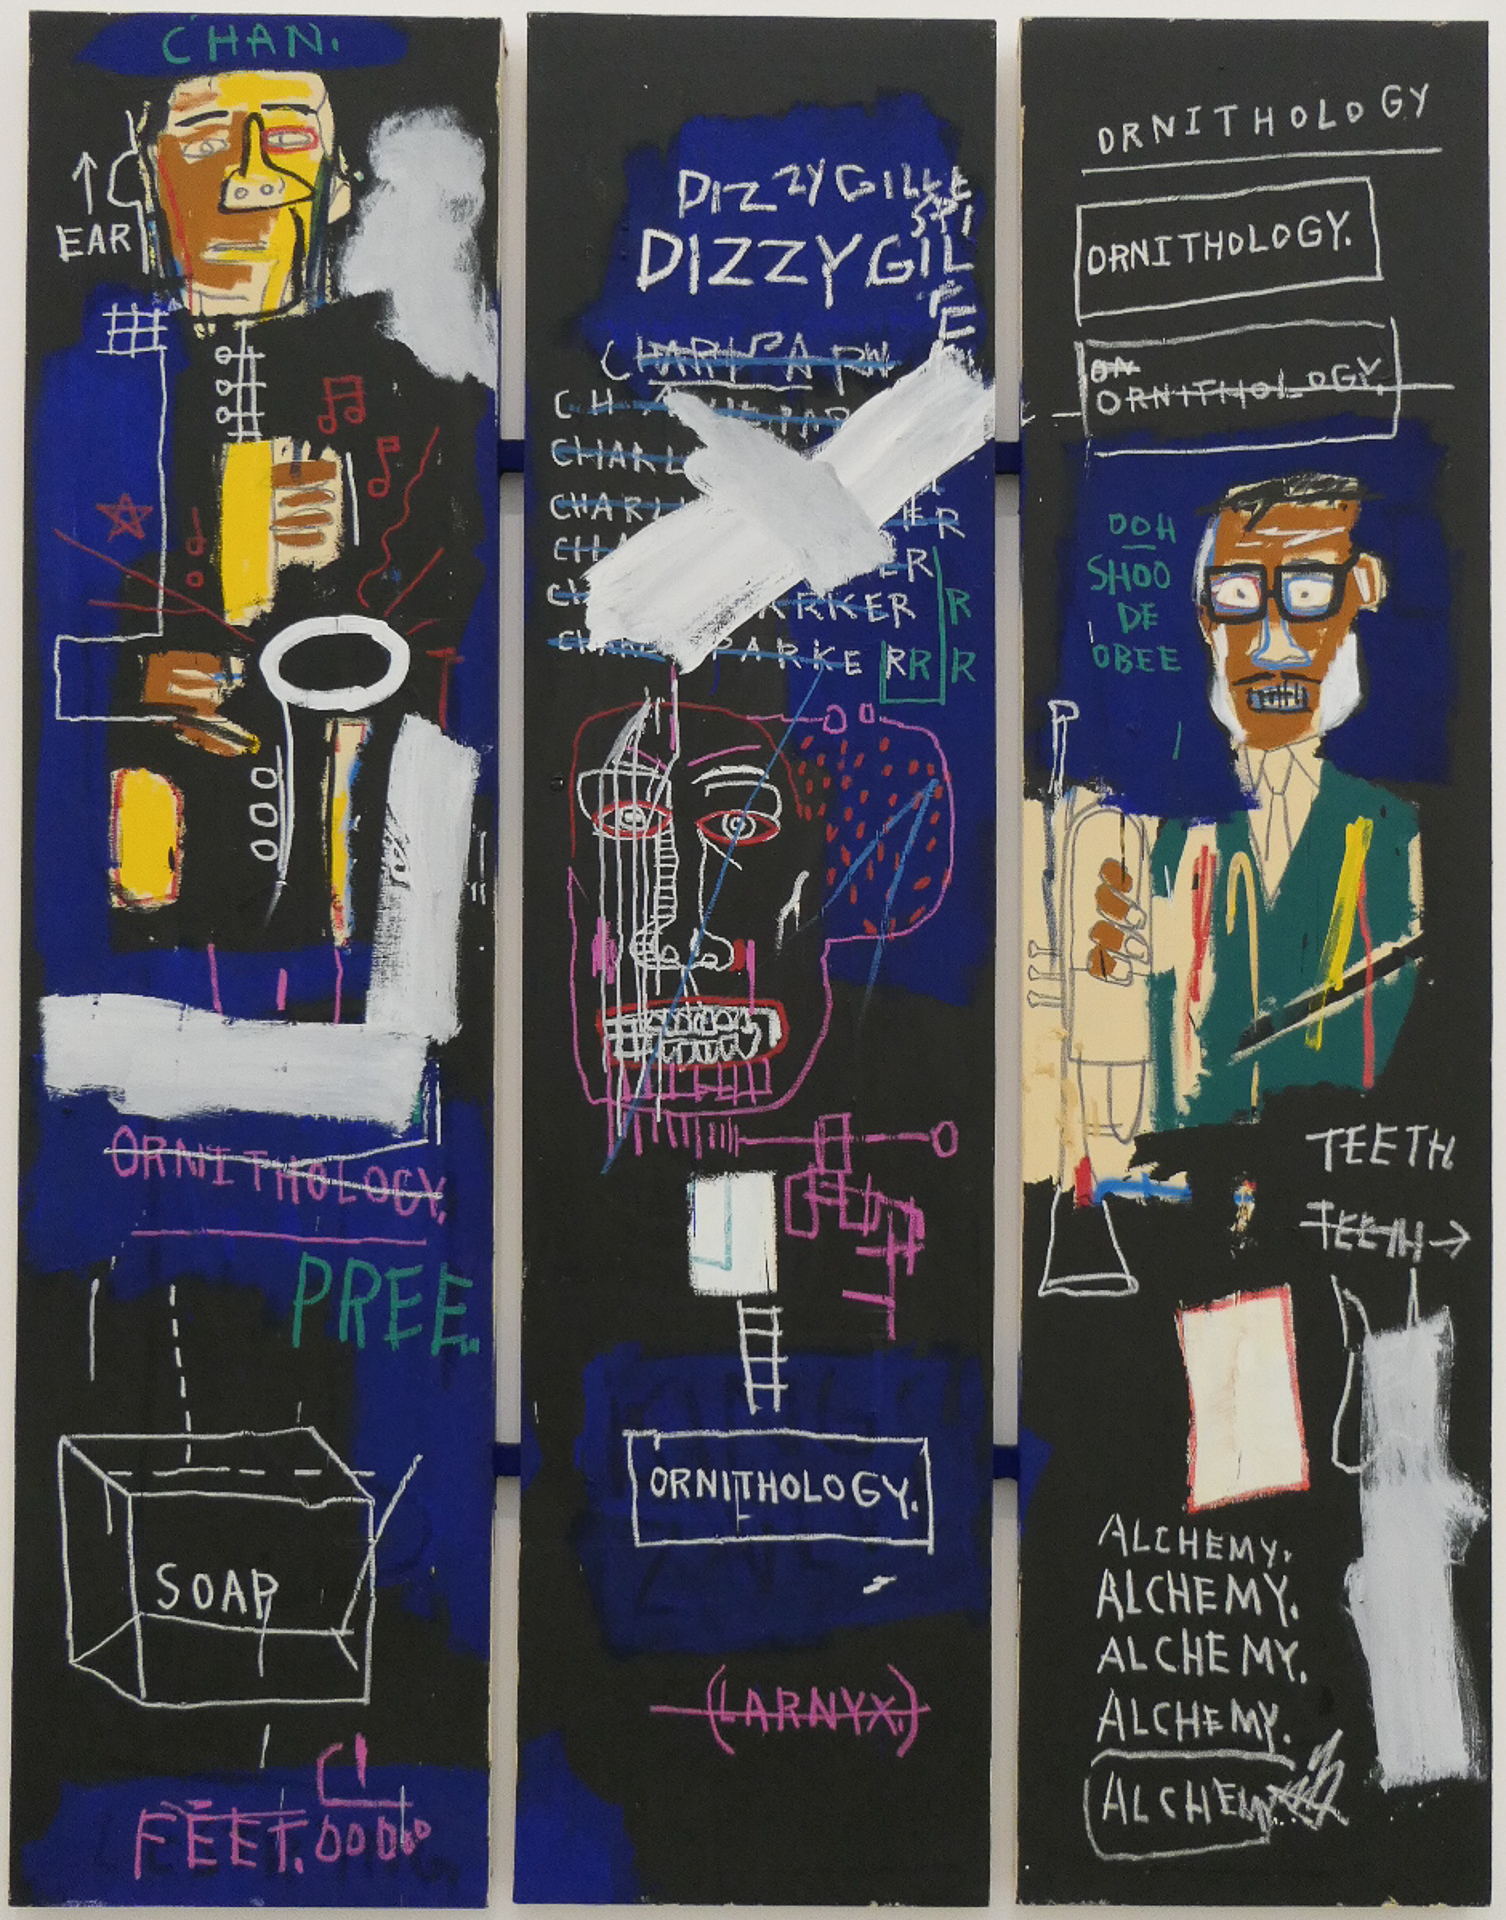 CHAN.
EAR
ORNITHOLOGY.
PREE.
SOAP
FEET.
DIZZYGILLE
SPI
DIZZYGIL
E
E
CHARL
CHARL
ER
CHA
ER
ARKER
R
PARKERR
R
ORNITHOLOGY.
(LARNYX.)
ORNITHOLOGY
ORNITHOLOGY.
ON
ORNITHOLOGY.
OOH
SHOO
DE
OBEE
TEETH.
TEETH→
ALCHEMY.
ALCHEMY.
ALCHEMY.
ALCHEMY.
ALCHEM